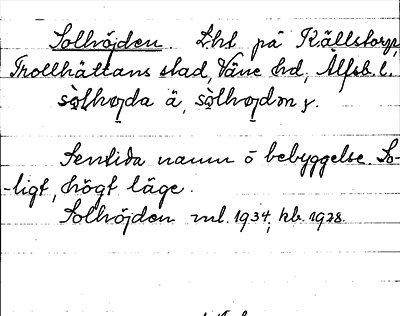 Solhöjden. Lht på Källstorp,
Trollhättans stad, Väne hd, Älfsb. l.
sòlhøjda ä, sòlhøjdən y.
Sentida namn å bebyggelse. So-
-ligt, högt läge.
Solhöjden ml. 1934, hb. 1928.